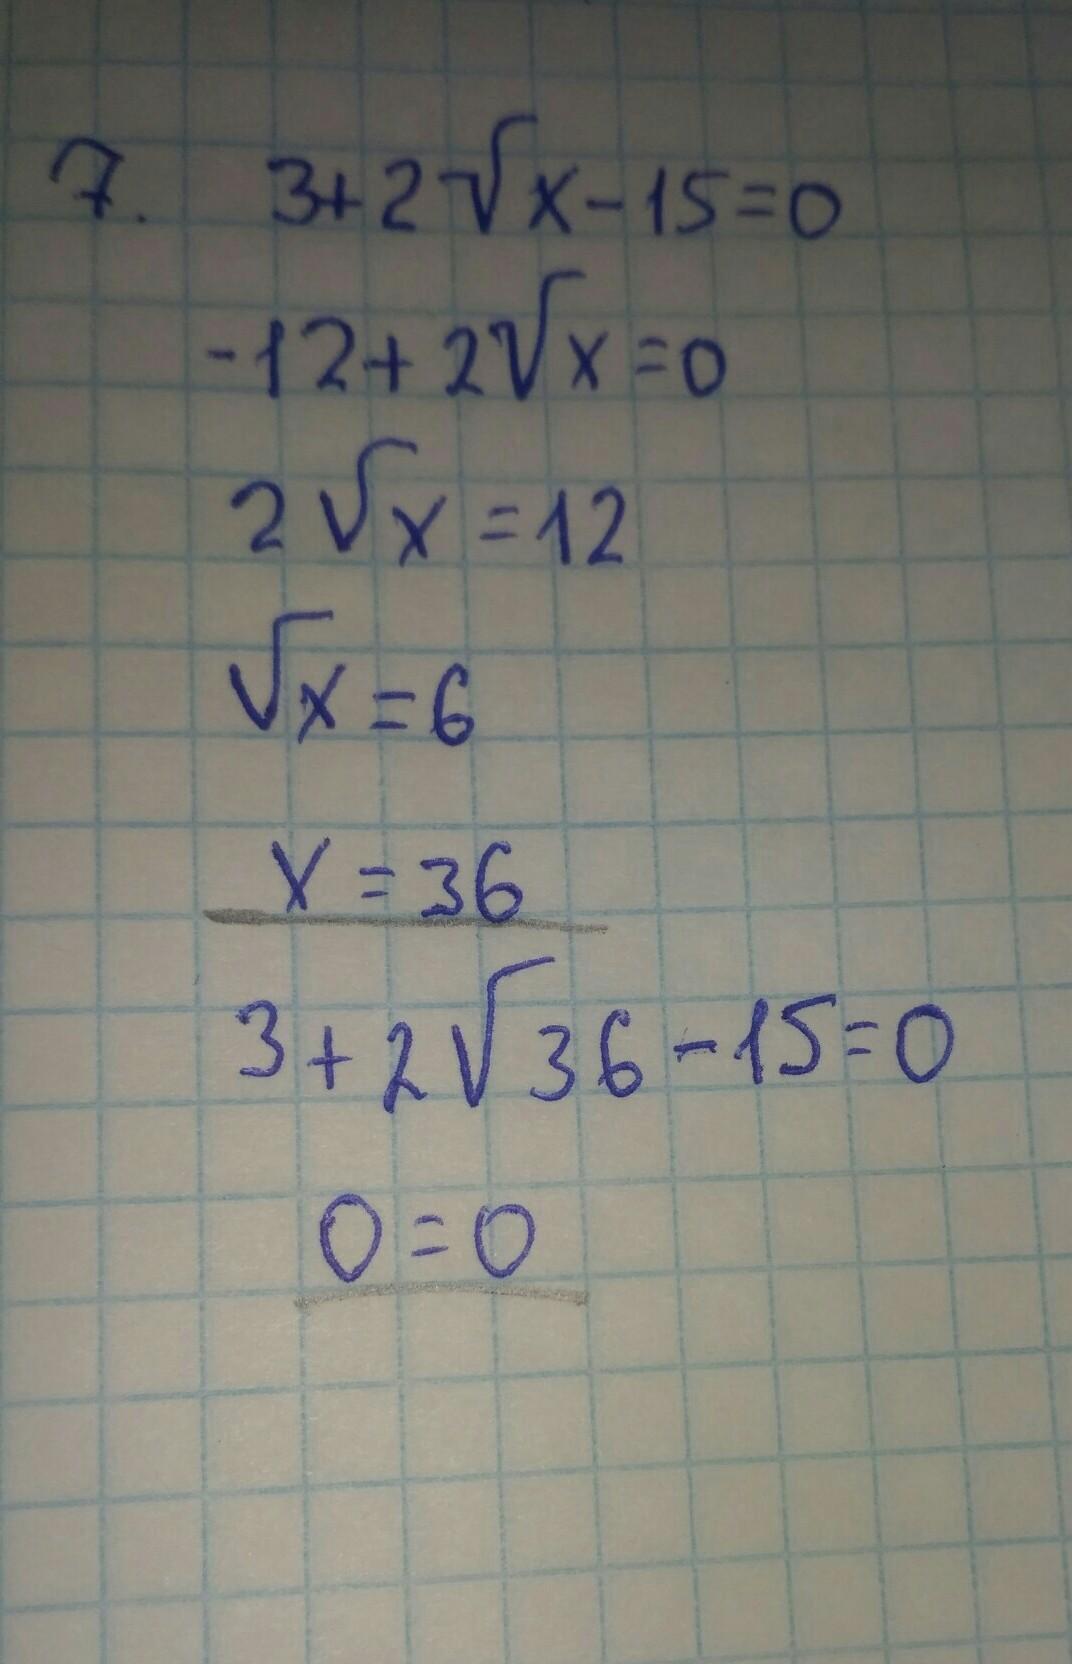 7. 3+2√x-15=0
-12+2√x=0
2√x=12
√x=6
x=36
3+2√36-15=0
0=0